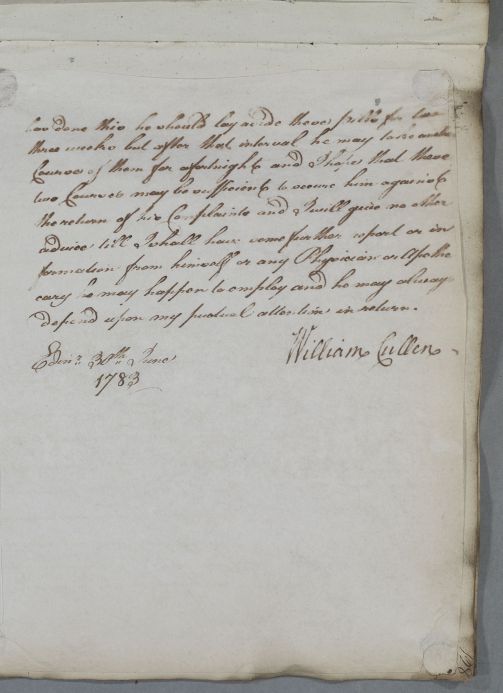 has done this he should lay aside these pills for two
three weeks but after that interval he may take another
Course of them for a fortnight and I hope that these
two Courses may be sufficient to secure him against
the return of his Complaints and I will give no other
advice till I shall have some further report or in
formation from himself or any Physician or Apothe
cary he may happen to employ and he may always
depend upon my punctual attention in return.
William Cullen
Edinr. 30th June
1783